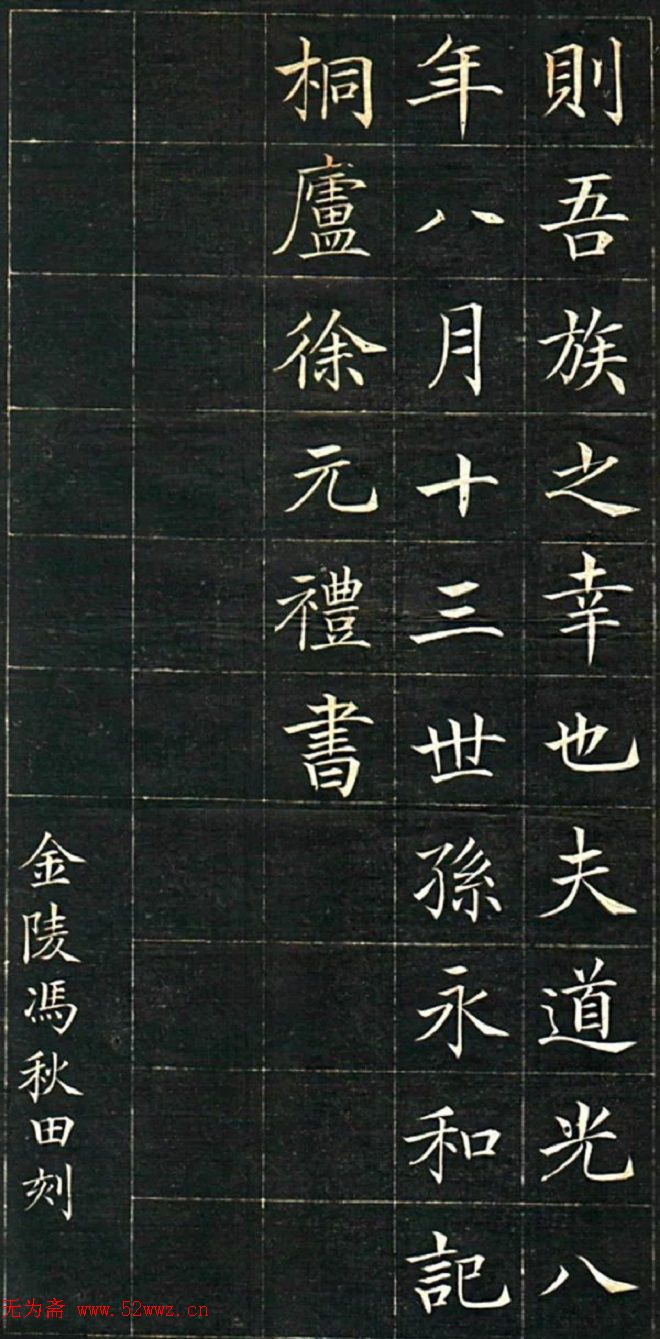 則吾族之幸也夫道光八
年八月十三世孫永和記
桐廬徐元禮書
金陵馮秋田刻
无为斋 www.52wwz.cn